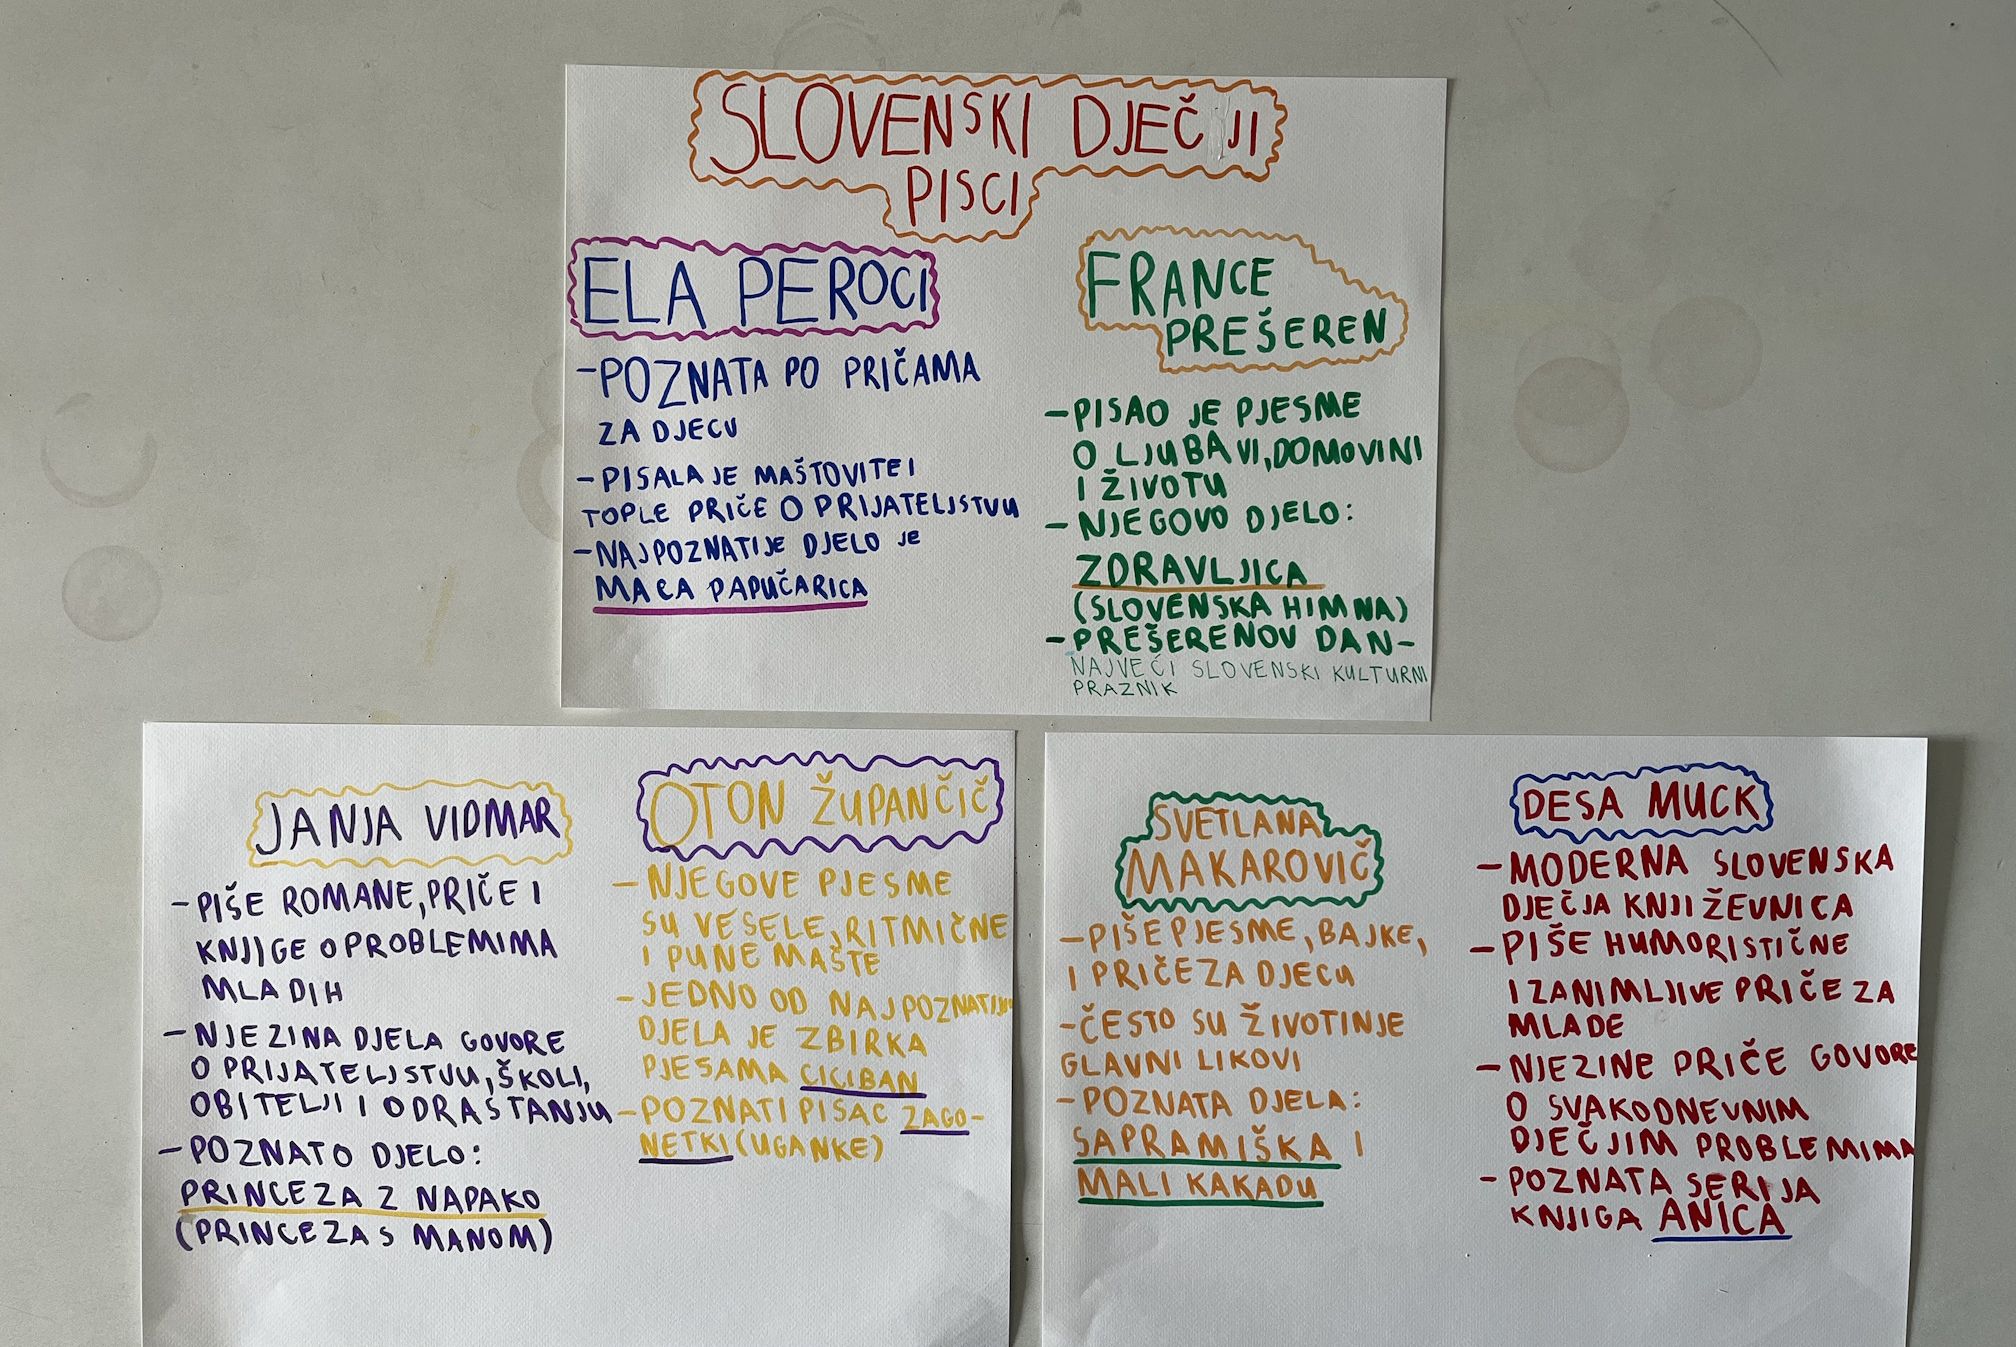 SLOVENSKI DJEČJI
PISCI
ELA PEROCI
-POZNATA PO PRIČAMA
ZA DJECU
-PISALA JE MAŠTOVITE I
TOPLE PRIČE O PRIJATELJSTVU
-NAJPOZNATIJE DJELO JE
MACA PAPUČARICA
FRANCE
PREŠEREN
-PISAO JE PJESME
O LJUBAVI, DOMOVINI
I ŽIVOTU
-NJEGOVO DJELO:
ZDRAVLJICA
(SLOVENSKA HIMNA)
-PREŠERENOV DAN-
NAJVEĆI SLOVENSKI KULTURNI
PRAZNIK
JANJA VIDMAR
-PIŠE ROMANE, PRIČE I
KNJIGE O PROBLEMIMA
MLADIH
-NJEZINA DJELA GOVORE
O PRIJATELJSTVU, ŠKOLI,
OBITELJI I ODRASTANJU
-POZNATO DJELO:
PRINCEZA Z NAPAKO
(PRINCEZA S MANOM)
OTON ŽUPANČIČ
-NJEGOVE PJESME
SU VESELE, RITMIČNE
I PUNE MAŠTE
-JEDNO OD NAJPOZNATIJIH
DJELA JE ZBIRKA
PJESAMA CICIBAN
-POZNATI PISAC ZAGO-
NETKI (UGANKE)
SVETLANA
MAKAROVIČ
-PIŠE PJESME, BAJKE,
I PRIČE ZA DJECU
-ČESTO SU ŽIVOTINJE
GLAVNI LIKOVI
-POZNATA DJELA:
SAPRAMIŠKA I
MALI KAKADU
DESA MUCK
-MODERNA SLOVENSKA
DJEČJA KNJIŽEVNICA
-PIŠE HUMORISTIČNE
I ZANIMLJIVE PRIČE ZA
MLADE
-NJEZINE PRIČE GOVORE
O SVAKODNEVNIM
DJEČJIM PROBLEMIMA
-POZNATA SERIJA
KNJIGA ANICA